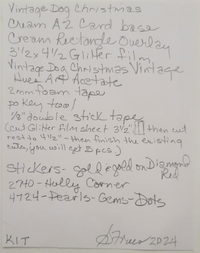 Vintage Dog Christmas
Cream A-2 Card base
Cream Rectangle Overlay
3 1/2 x 4 1/2 Glitter film
Vintage Dog Christmas Vintage
Hues Art Acetate
2mm foam tape
pokey tool
1/8" double stick tape
(cut Glitter film sheet 3 1/2" then cut
rest to 4 1/2" - then finish the existing
cuts, you will get 8 pcs)
Stickers - gold + gold on Diamond
Red
2740 - Holly Corner
4724 - Pearls - Gems - Dots
KIT
2024